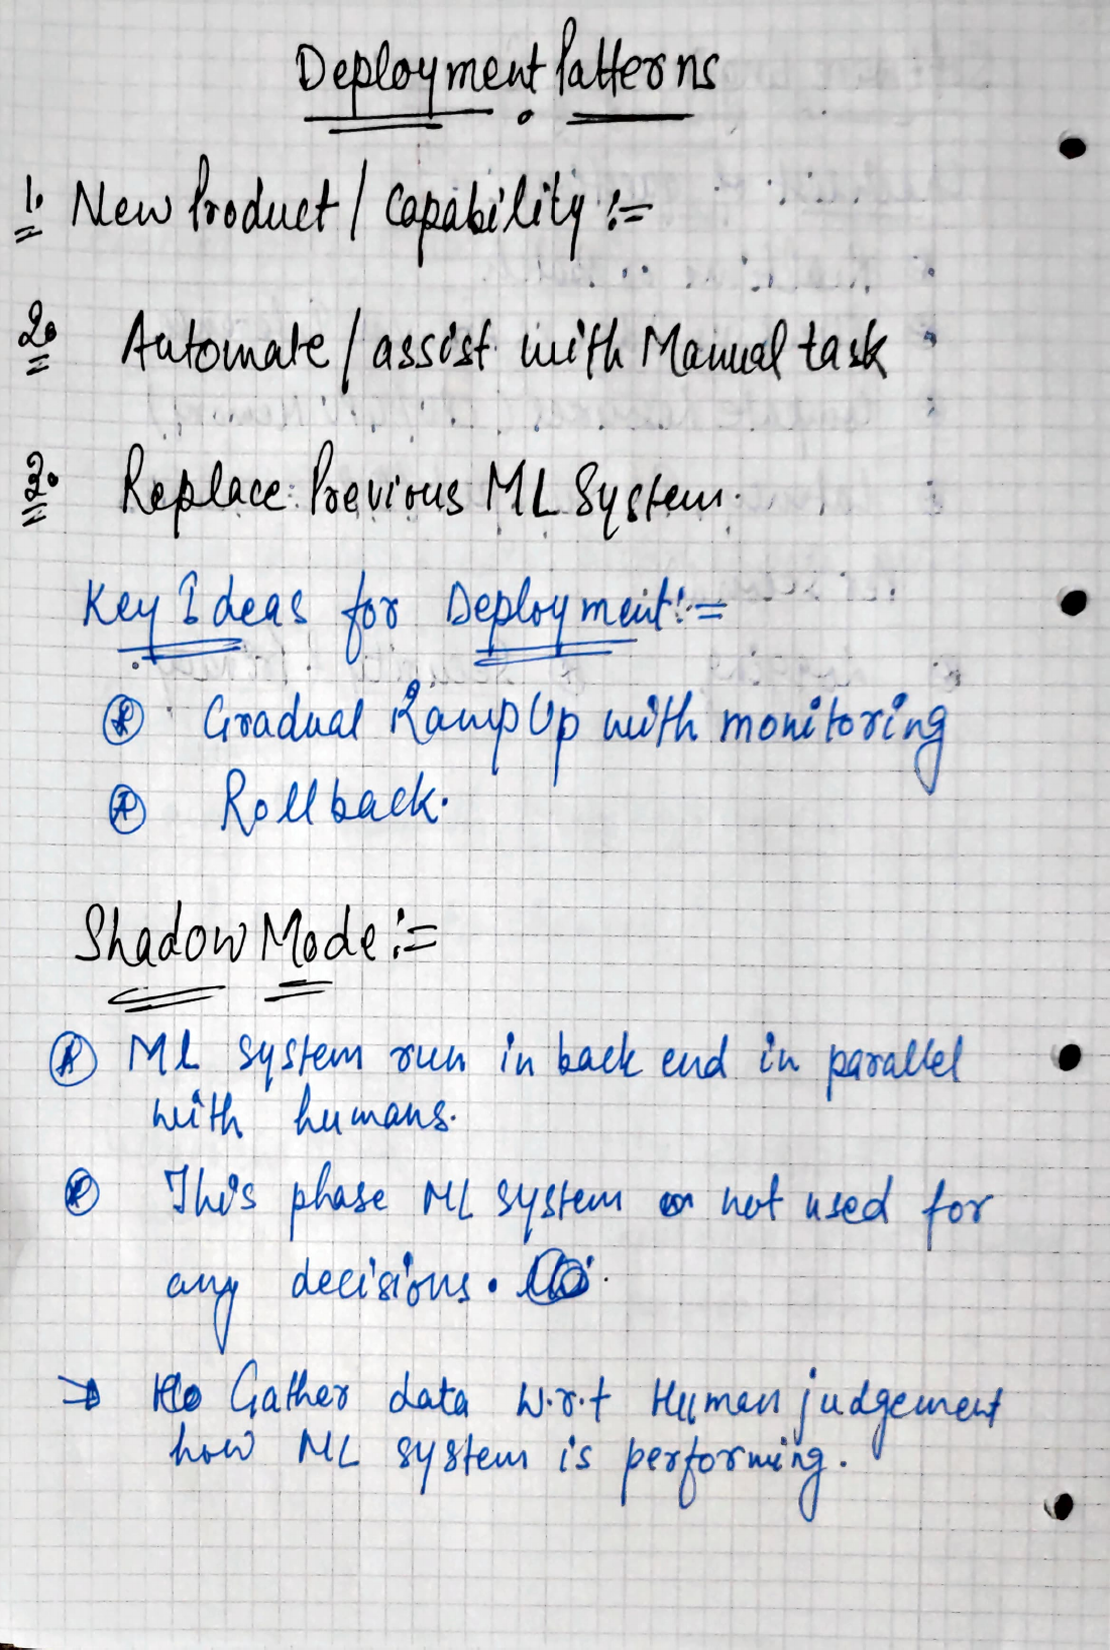 Deployment Patterns
1. New Product / Capability :=
2. Automate / assist with Manual task
3. Replace Previous ML System.
Key Ideas for Deployment :=
Gradual Ramp Up with monitoring
Rollback.
Shadow Mode :=
ML system run in back end in parallel
with humans.
This phase ML system not used for
any decisions.
→ Gather data w.r.t Human judgement
how ML system is performing.